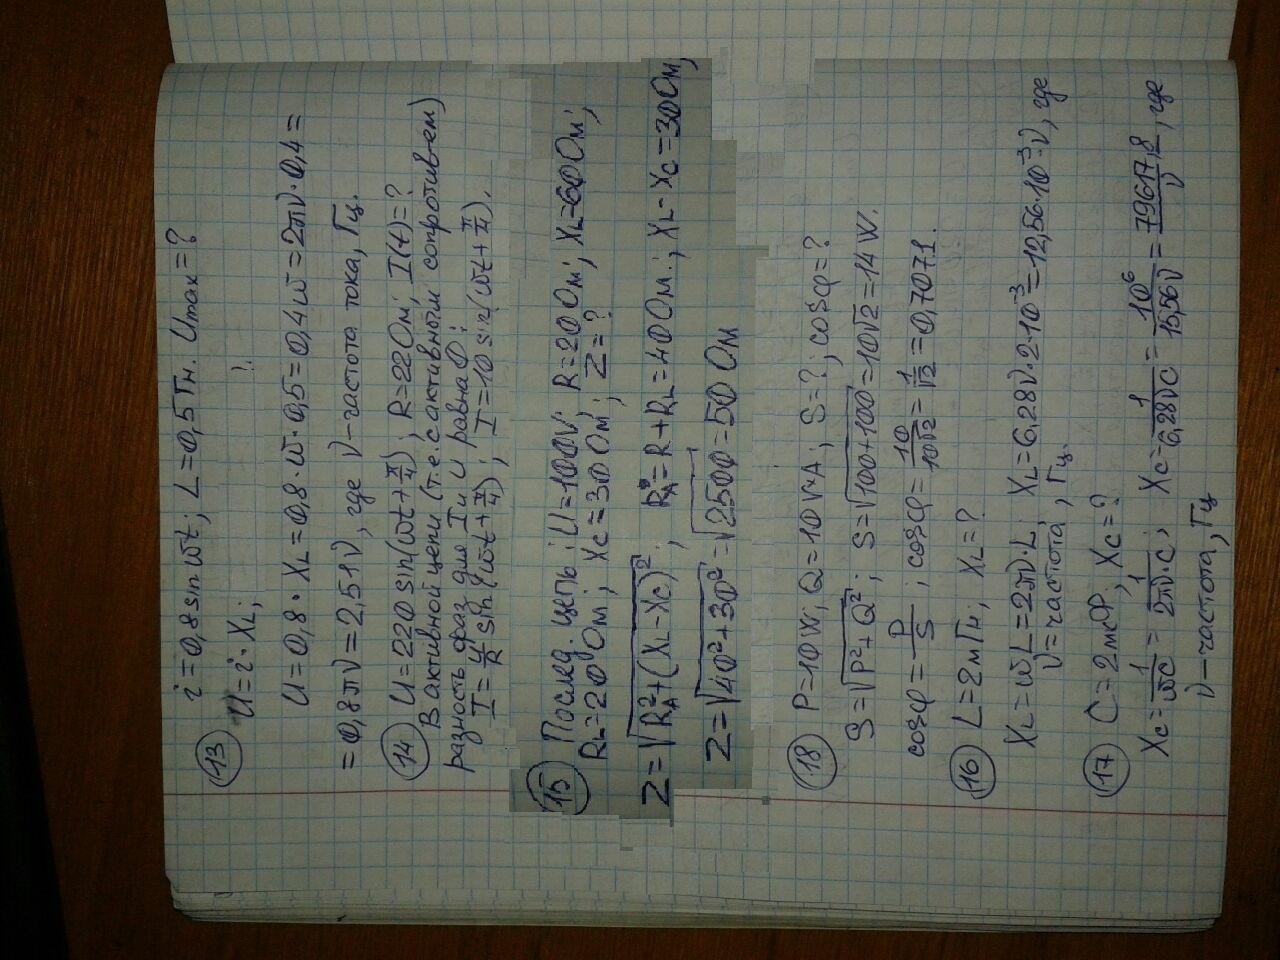 13 i=0,8 sin ωt; L=0,5 Гн. Umax=?
U=i·XL;
U=0,8·XL=0,8·ω·0,5=0,4ω=2πν·0,4=
=0,8πν=2,51ν, где ν-частота тока, Гц.
14 U=220 sin(ωt+π/4); R=22 Ом; I(t)=?
В активной цепи (т.е. с активным сопротивлем)
разность фаз для I и U равна 0;
I=U/R sin(ωt+π/4); I=10 sin(ωt+π/4).
15 Послед. цепь; U=100V; R=20 Ом; XL=60 Ом;
RL=20 Ом; XC=30 Ом; Z=?
Z=√(RA²+(XL-XC)²); RA=R+RL=40 Ом.; XL-XC=30 Ом;
Z=√(40²+30²)=√2500=50 Ом
18 P=10W; Q=10V·A; S=?; cosφ=?
S=√(P²+Q²); S=√(100+100)=10√2=14W.
cosφ=P/S; cosφ=10/10√2=1/√2=0,7071.
16 L=2мГн; XL=?
XL=ωL=2πν·L; XL=6,28ν·2·10⁻³=12,56·10⁻³·ν, где
ν=частота, Гц.
17 C=2мсФ; XC=?
XC=1/ωC=1/2πν·C; XC=1/6,28νC=10⁶/15,56ν=79617,8/ν, где
ν-частота, Гц